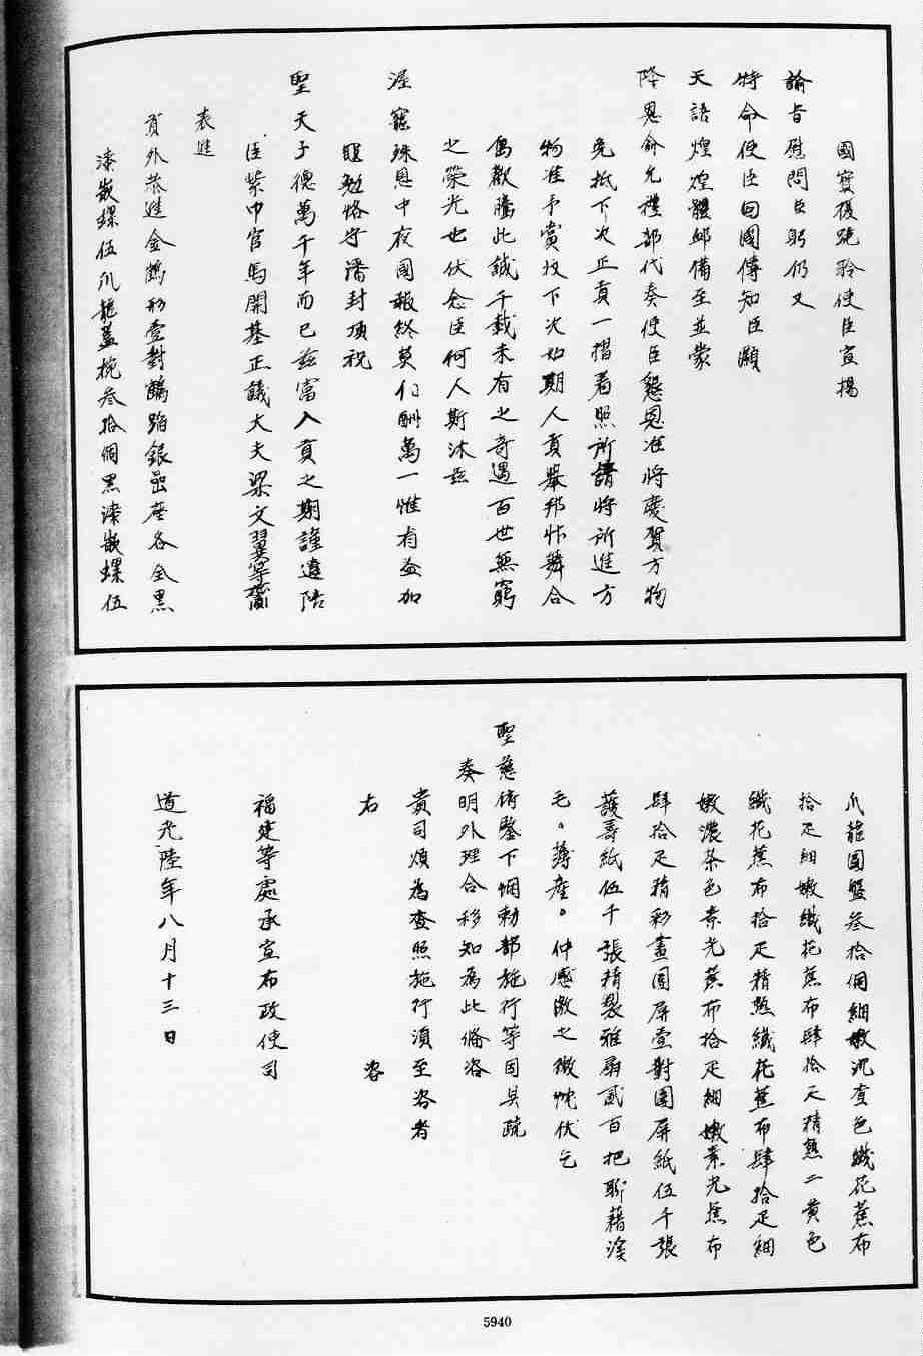 國寔復跪聆使臣宣揚
諭旨慰問臣躬仍又
特命使臣回國傳知臣灝
天語煌煌體卹備至並蒙
降恩俞允禮部代奏使臣懇恩准將慶賀方物
免抵下次正貢一摺着照所請將所進方
物准予賞收下次如期人貢舉邦忭舞合
島歡騰此誠千載未有之奇遇百世無窮
之榮光也伏念臣何人斯沐茲
渥寵殊恩中夜圖報終莫得酬萬一惟有益加
黽勉恪守藩封頂祝
聖天子德萬千年而已茲當入貢之期謹遣陪
臣紫巾官馬開基正議大夫梁文翼等齎
表進
貢外恭進金鶴形壹對鶴踏銀嵒座各全黑
漆嵌螺伍爪龍蓋椀叁拾個黑漆嵌螺伍
爪龍圓盤叁拾個細嫩沉香色織花蕉布
拾疋細嫩織花蕉布肆拾疋精熟二黃色
織花蕉布拾疋精熟織花蕉布肆拾疋細
嫩濃茶色素光蕉布拾疋細嫩素光蕉布
肆拾疋精彩畫圓屏壹對圍屏紙伍千張
護壽紙伍千張精製雅扇貳百把聊藉溪
毛。薄産。仲感激之微忱伏乞
聖慈俯鑒下悃勅部施行等因具疏
奏明外理合移知為此俻咨
貴司煩為查照施行湏至咨者
右 咨
福建等處承宣布政使司
道光陸年八月十三日
5940